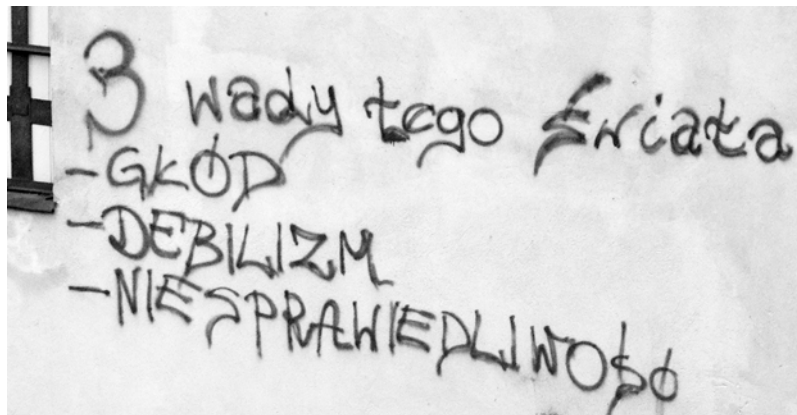 3 wady tego świata
-GŁÓD
-DEBILIZM
-NIESPRAWIEDLIWOŚĆ